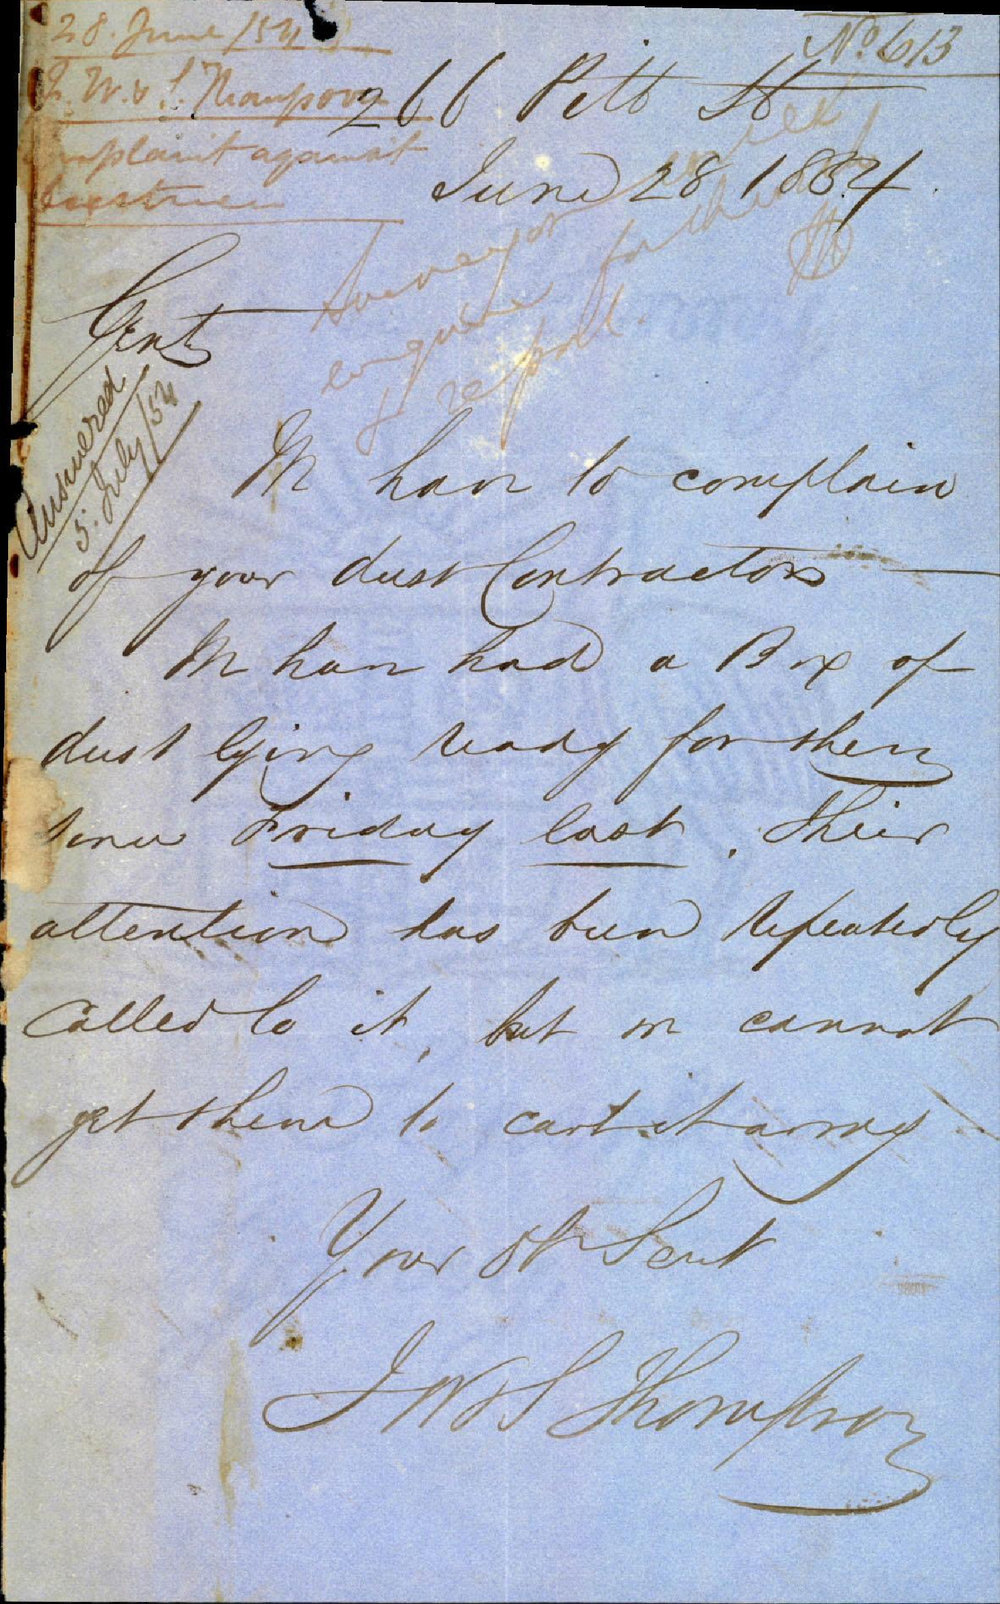 28. June /54
No. 613
J. W. & S. Thompson
complaint against
dustmen
266 Pitt St
June 28 1854.
Surveyor
enquire further
& report.
Gent
Answered
5. July /54
We have to complain
of your dust Contractors —
We have had a Box of
dust lying ready for them
since Friday last. Their
attention has been repeatedly
called to it, but we cannot
get them to cart it away
Your Ob Servt
J W & S Thompson